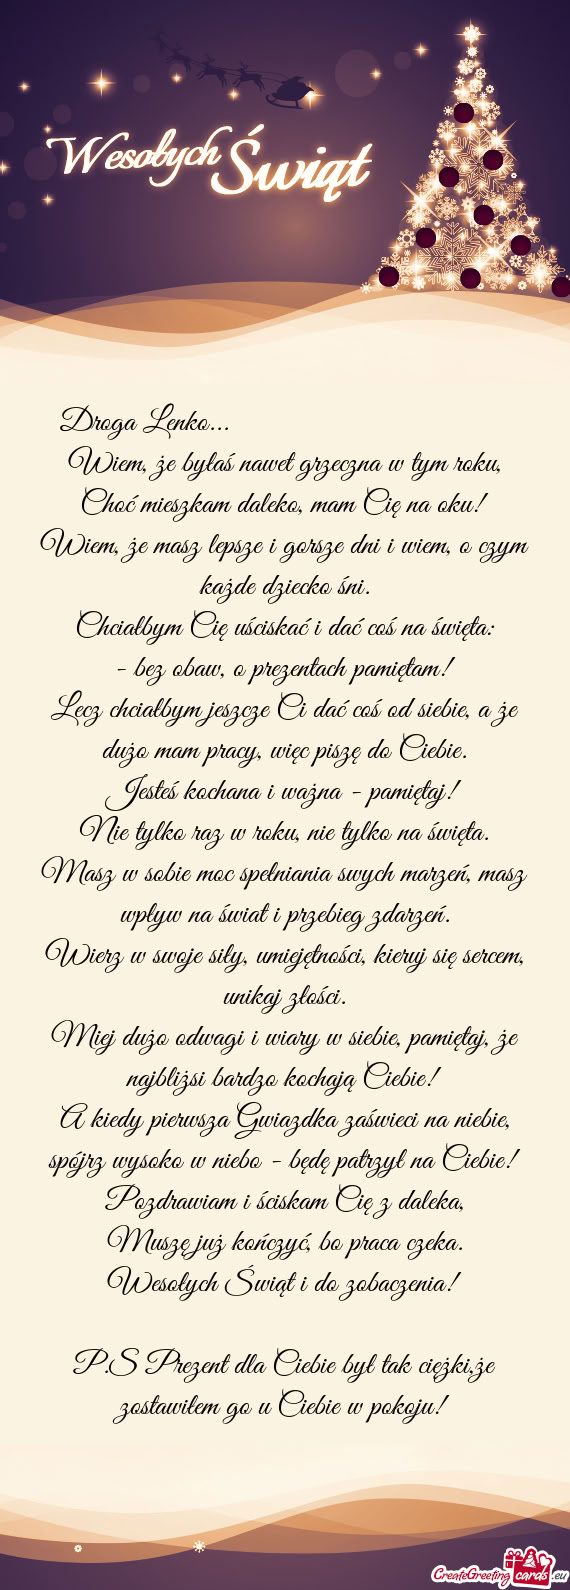 Wesołych Świąt
Droga Lenko...
Wiem, że byłaś nawet grzeczna w tym roku,
Choć mieszkam daleko, mam Cię na oku!
Wiem, że masz lepsze i gorsze dni i wiem, o czym
każde dziecko śni.
Chciałbym Cię uściskać i dać coś na święta:
- bez obaw, o prezentach pamiętam!
Lecz chciałbym jeszcze Ci dać coś od siebie, a że
dużo mam pracy, więc piszę do Ciebie.
Jesteś kochana i ważna - pamiętaj!
Nie tylko raz w roku, nie tylko na święta.
Masz w sobie moc spełniania swych marzeń, masz
wpływ na świat i przebieg zdarzeń.
Wierz w swoje siły, umiejętności, kieruj się sercem,
unikaj złości.
Miej dużo odwagi i wiary w siebie, pamiętaj, że
najbliżsi bardzo kochają Ciebie!
A kiedy pierwsza Gwiazdka zaświeci na niebie,
spójrz wysoko w niebo - będę patrzył na Ciebie!
Pozdrawiam i ściskam Cię z daleka,
Muszę już kończyć, bo praca czeka.
Wesołych Świąt i do zobaczenia!
P.S Prezent dla Ciebie był tak ciężki,że
zostawiłem go u Ciebie w pokoju!
CreateGreetingcards.eu